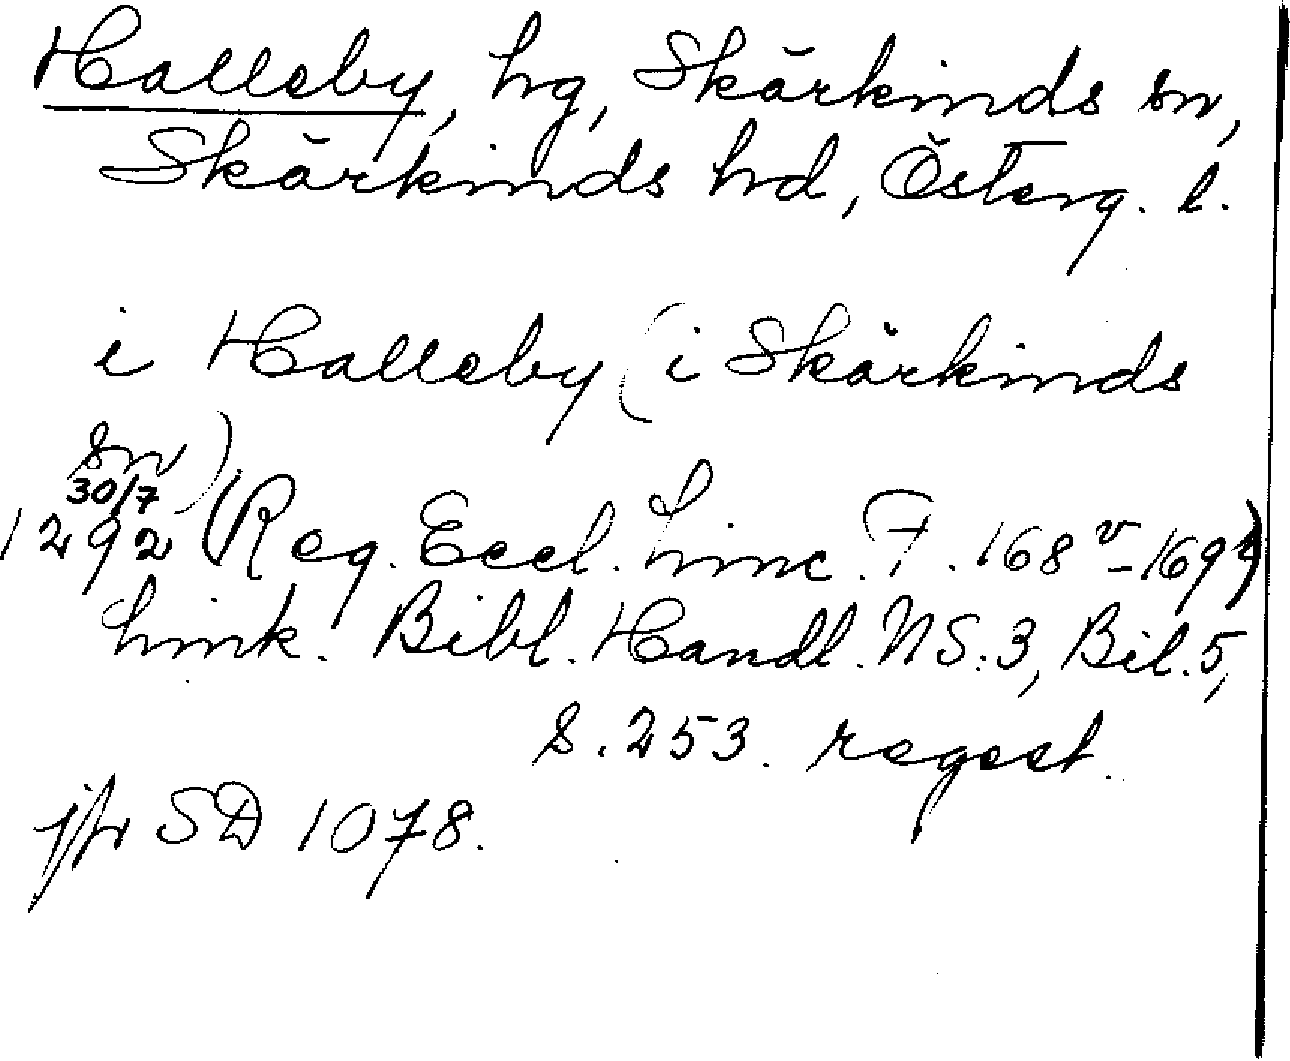 Halleby, hg, Skärkinds sn,
Skärkinds hd, Österg. l.
i Halleby (i Skärkinds
sn)
30/7
1292 (Reg. Eccl. Linc. F. 168v-169r)
Link. Bibl. Handl. NS. 3, Bil. 5,
s. 253. regest.
jfr SD 1078.